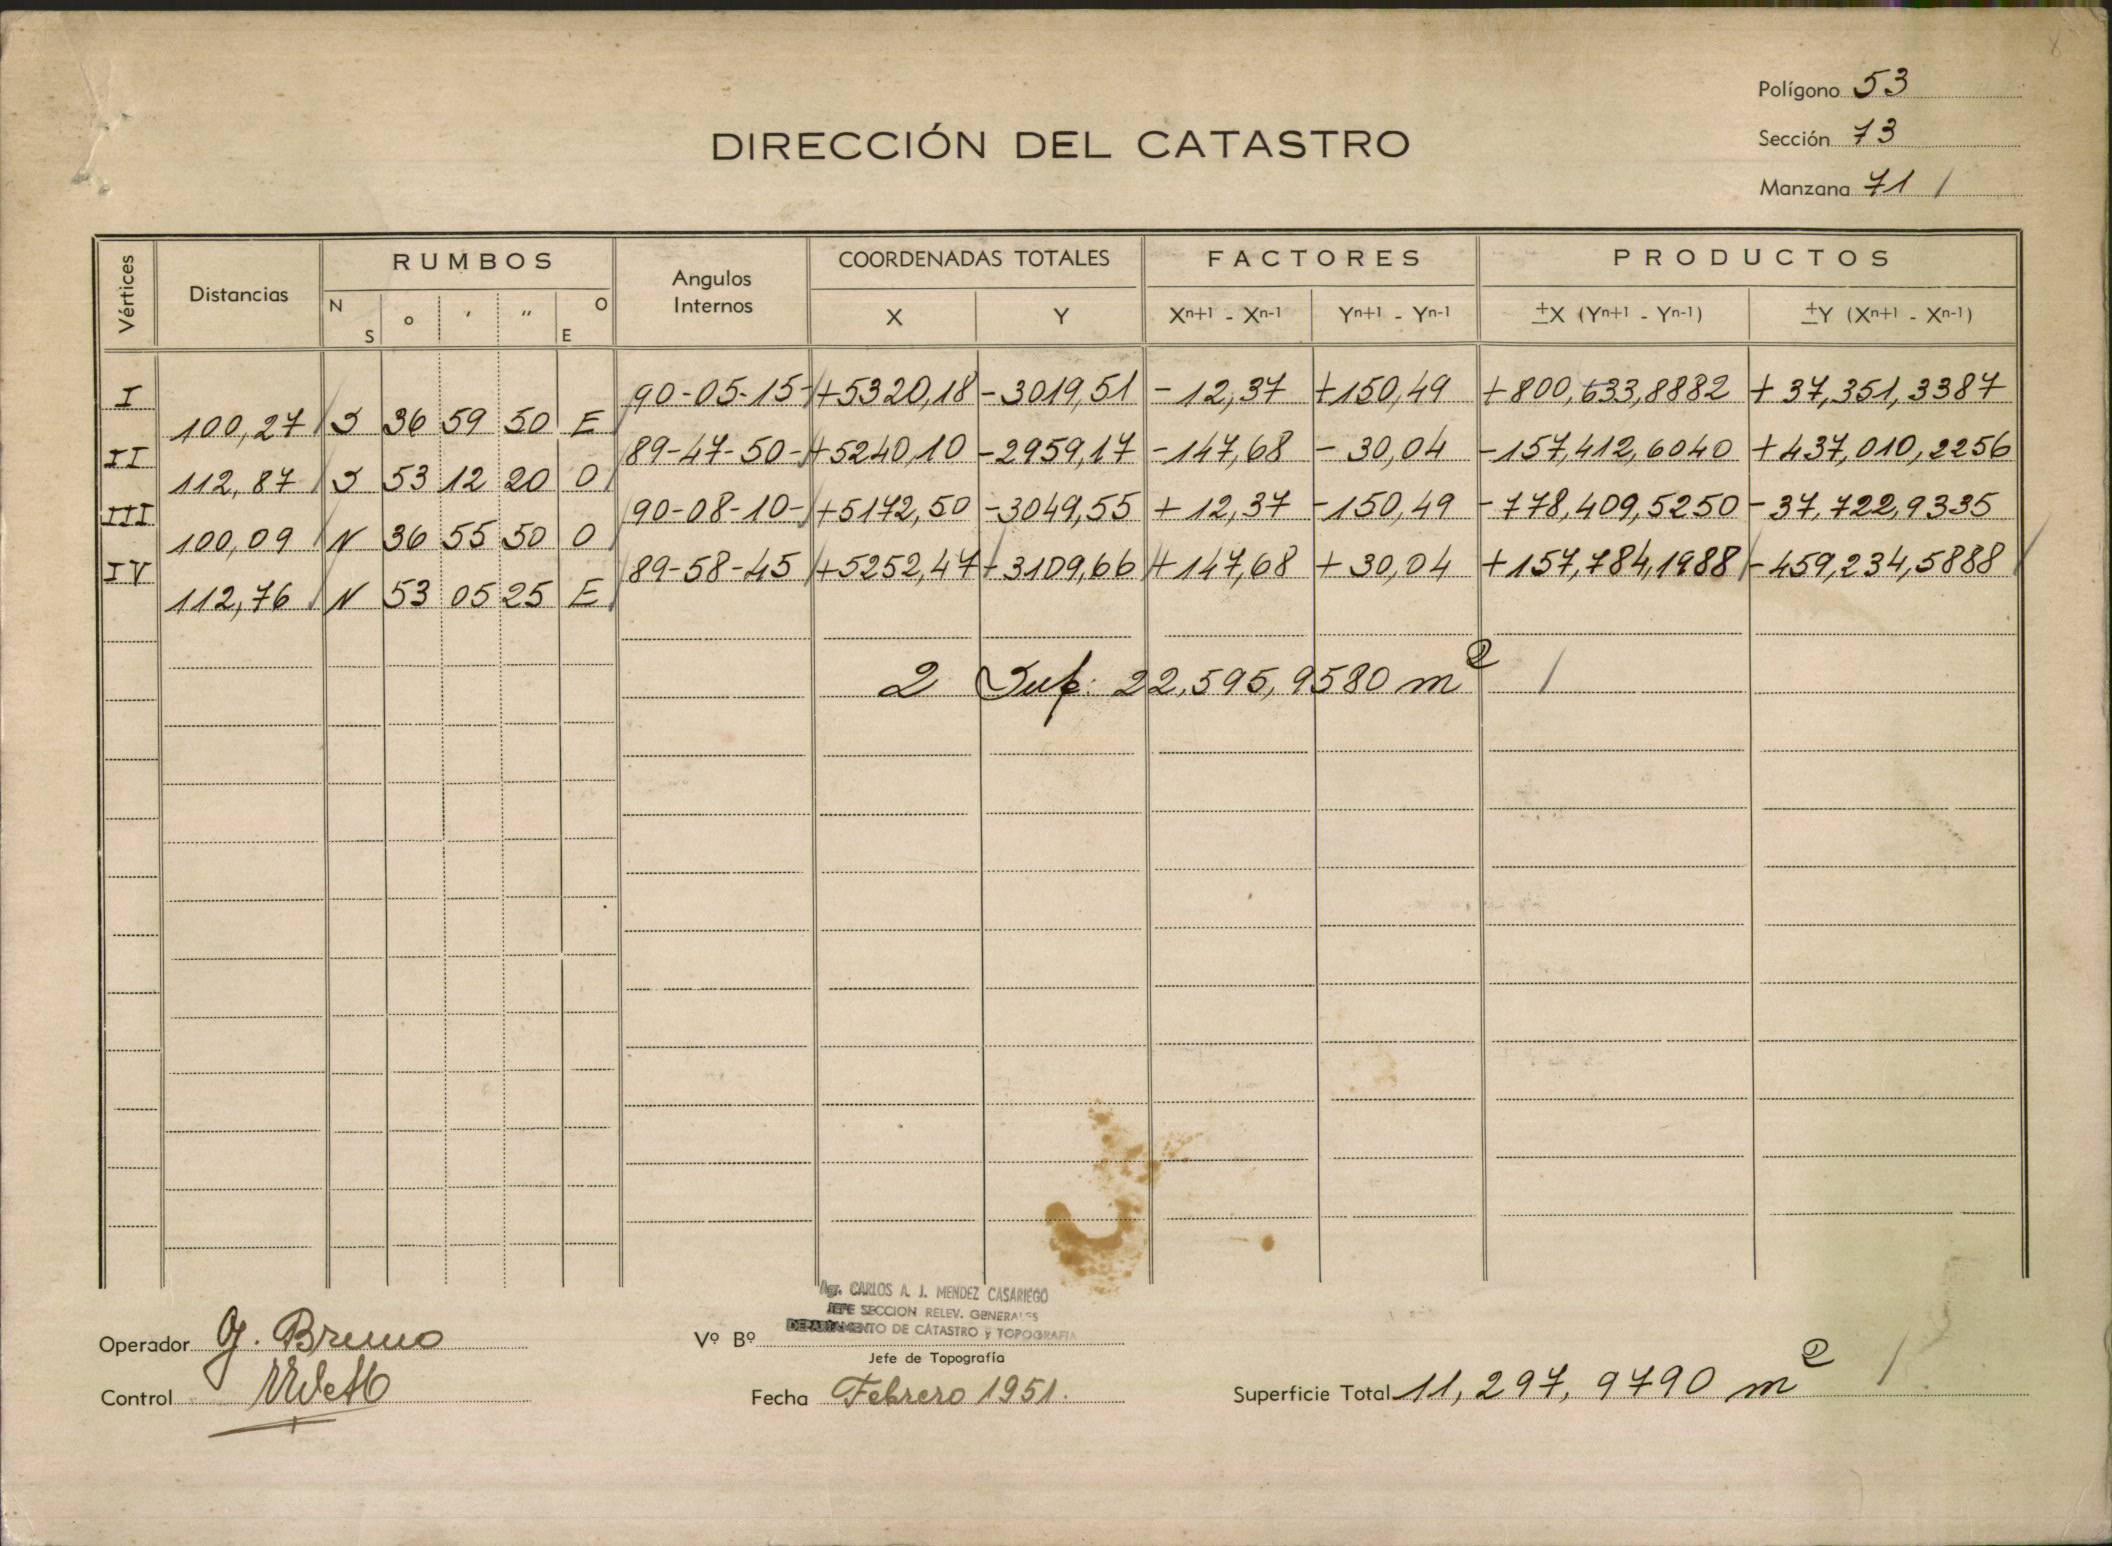 Polígono 53
DIRECCIÓN DEL CATASTRO
Sección 73
Manzana 71 /
Vértices Distancias RUMBOS Angulos Internos COORDENADAS TOTALES FACTORES PRODUCTOS
N S o ' " O E X Y Xn+1 - Xn-1 Yn+1 - Yn-1 ±X (Yn+1 - Yn-1) ±Y (Xn+1 - Xn-1)
I 90-05-15- +5320,18 -3019,51 -12,37 +150,49 +800,633,8882 +37,351,3387
100,27 S 36 59 50 E
II 89-47-50- +5240,10 -2959,17 -147,68 -30,04 -157,412,6040 +437,010,2256
112,87 S 53 12 20 O
III 90-08-10- +5172,50 -3049,55 +12,37 -150,49 -778,409,5250 -37,722,9335
100,09 N 36 55 50 O
IV 89-58-45 +5252,47 -3109,66 +147,68 +30,04 +157,784,1988 -459,234,5888
112,76 N 53 05 25 E
2 Sup: 22,595,9580 m2 /
Agr. CARLOS A. J. MENDEZ CASARIEGO
JEFE SECCION RELEV. GENERALES
DEPARTAMENTO DE CATASTRO y TOPOGRAFIA
Operador G. Bruno
Vº Bº
Jefe de Topografía
Control
Fecha Febrero 1951.
Superficie Total 11,297,9790 m2 /